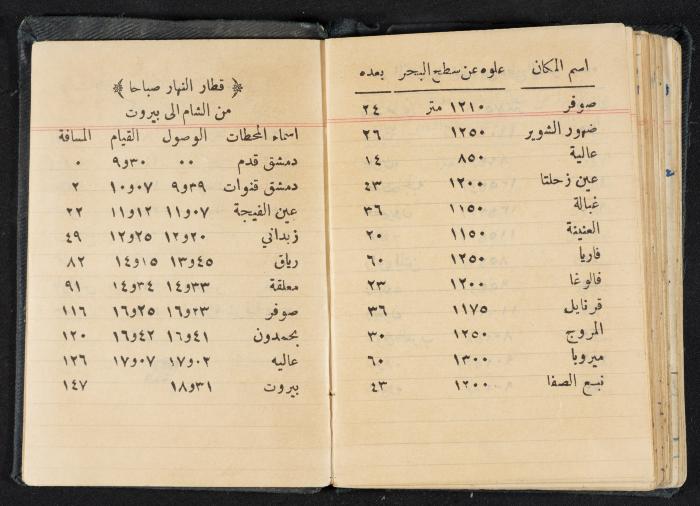 اسم المكان علوه عن سطح البحر بعده
صوفر ١٢١٠ متر ٢٤
ضهور الشوير ١٢٥٠ ٢٦
عالية ٨٥٠ ١٤
عين زحلتا ١٢٠٠ ٤٣
غبالة ١١٥٠ ٣٦
العنينة ١١٥٠ ٢٠
فاريا ١٢٥٠ ٦٠
فالوغا ١٢٠٠ ٢٣
قرنايل ١١٧٥ ٣٦
المروج ١٢٥٠ ٣٠
ميروبا ١٣٠٠ ٦٠
نبع الصفا ١٢٠٠ ٤٣
﴿ قطار النهار صباحا ﴾
من الشام الى بيروت
اسماء المحطات الوصول القيام المسافة
دمشق قدم ٠٠ ٣٠و٩ ٠
دمشق قنوات ٣٩و٩ ٠٧و١٠ ٢
عين الفيجة ٠٧و١١ ١٢و١١ ٢٢
زبداني ٢٠و١٢ ٢٥و١٢ ٤٩
رياق ٤٥و١٣ ١٥و١٤ ٨٢
معلقة ٣٣و١٤ ٣٤و١٤ ٩١
صوفر ٢٣و١٦ ٢٥و١٦ ١١٦
بحمدون ٤١و١٦ ٤٢و١٦ ١٢٠
عاليه ٠٢و١٧ ٠٧و١٧ ١٢٦
بيروت ٣١و١٨ ١٤٧